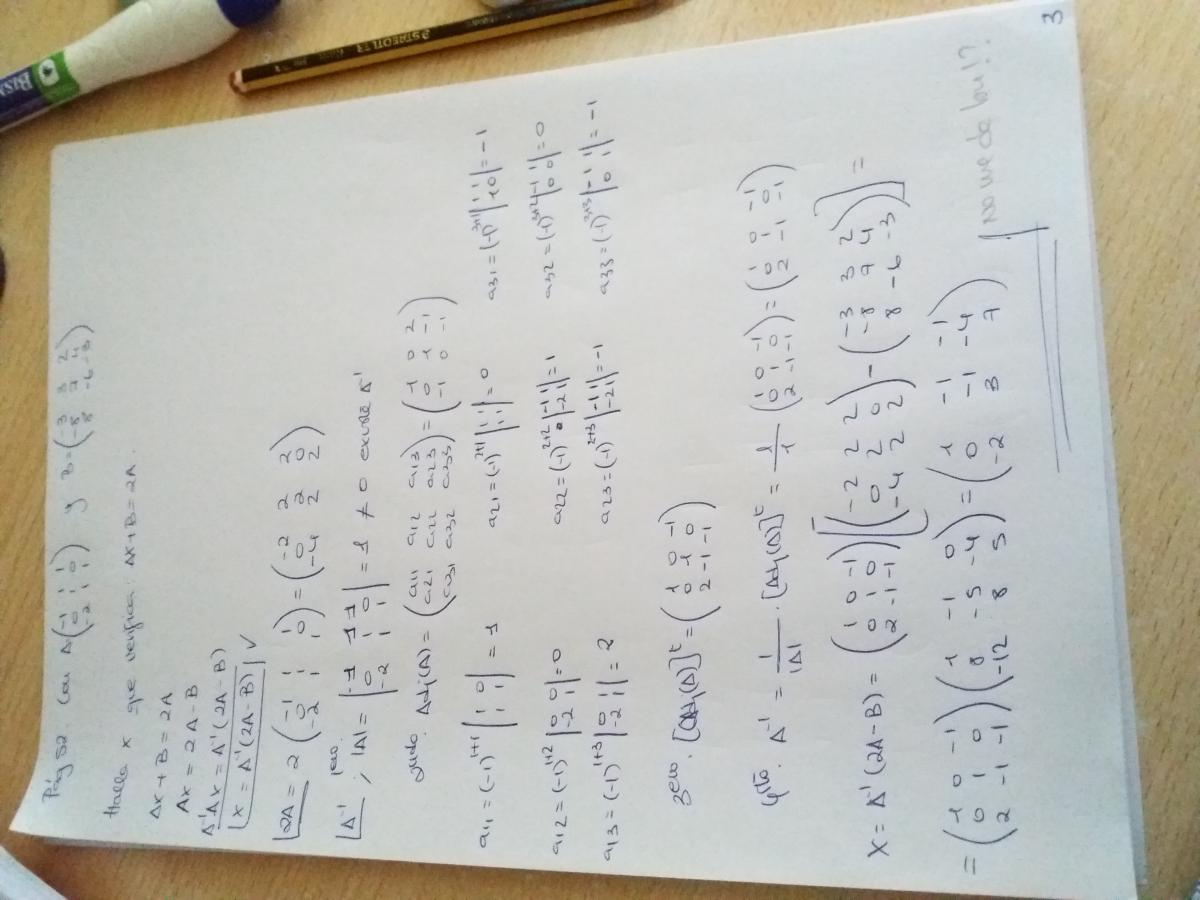 Pág 52: Con A(-1 1 1 / 0 1 0 / -2 1 1) y B=(-3 3 2 / -8 7 4 / 8 -6 -3)
Halla x que verifica: AX+B=2A.
AX+B=2A
AX=2A-B
A⁻¹AX=A⁻¹(2A-B)
X=A⁻¹(2A-B) ✓
2A=2(-1 1 1 / 0 1 0 / -2 1 1)=(-2 2 2 / 0 2 0 / -4 2 2)
A⁻¹; 1ero. |A|=|-1 1 1 / 0 1 0 / -2 1 1|=1≠0 existe A⁻¹
2undo. Adj(A)=(a11 a12 a13 / a21 a22 a23 / a31 a32 a33)=(1 0 2 / 0 1 -1 / -1 0 -1)
a11=(-1)¹⁺¹|1 0 / 1 1|=1 a21=(-1)²⁺¹|1 1 / 1 1|=0 a31=(-1)³⁺¹|1 1 / 1 0|=-1
a12=(-1)¹⁺²|0 0 / -2 1|=0 a22=(-1)²⁺²|-1 1 / -2 1|=1 a32=(-1)³⁺²|-1 1 / 0 0|=0
a13=(-1)¹⁺³|0 1 / -2 1|=2 a23=(-1)²⁺³|-1 1 / -2 1|=-1 a33=(-1)³⁺³|-1 1 / 0 1|=-1
3ero. [Adj(A)]ᵗ=(1 0 -1 / 0 1 0 / 2 -1 -1)
4to. A⁻¹=1/|A|·[Adj(A)]ᵗ=1/1(1 0 -1 / 0 1 0 / 2 -1 -1)=(1 0 -1 / 0 1 0 / 2 -1 -1)
X=A⁻¹(2A-B)=(1 0 -1 / 0 1 0 / 2 -1 -1)[(-2 2 2 / 0 2 0 / -4 2 2)-(-3 3 2 / -8 7 4 / 8 -6 -3)]=
=(1 0 -1 / 0 1 0 / 2 -1 -1)(1 -1 0 / 8 -5 -4 / -12 8 5)=(1 -1 -1 / 0 -1 -4 / -2 3 7)
No me da bu!?
3
STAEDTLER